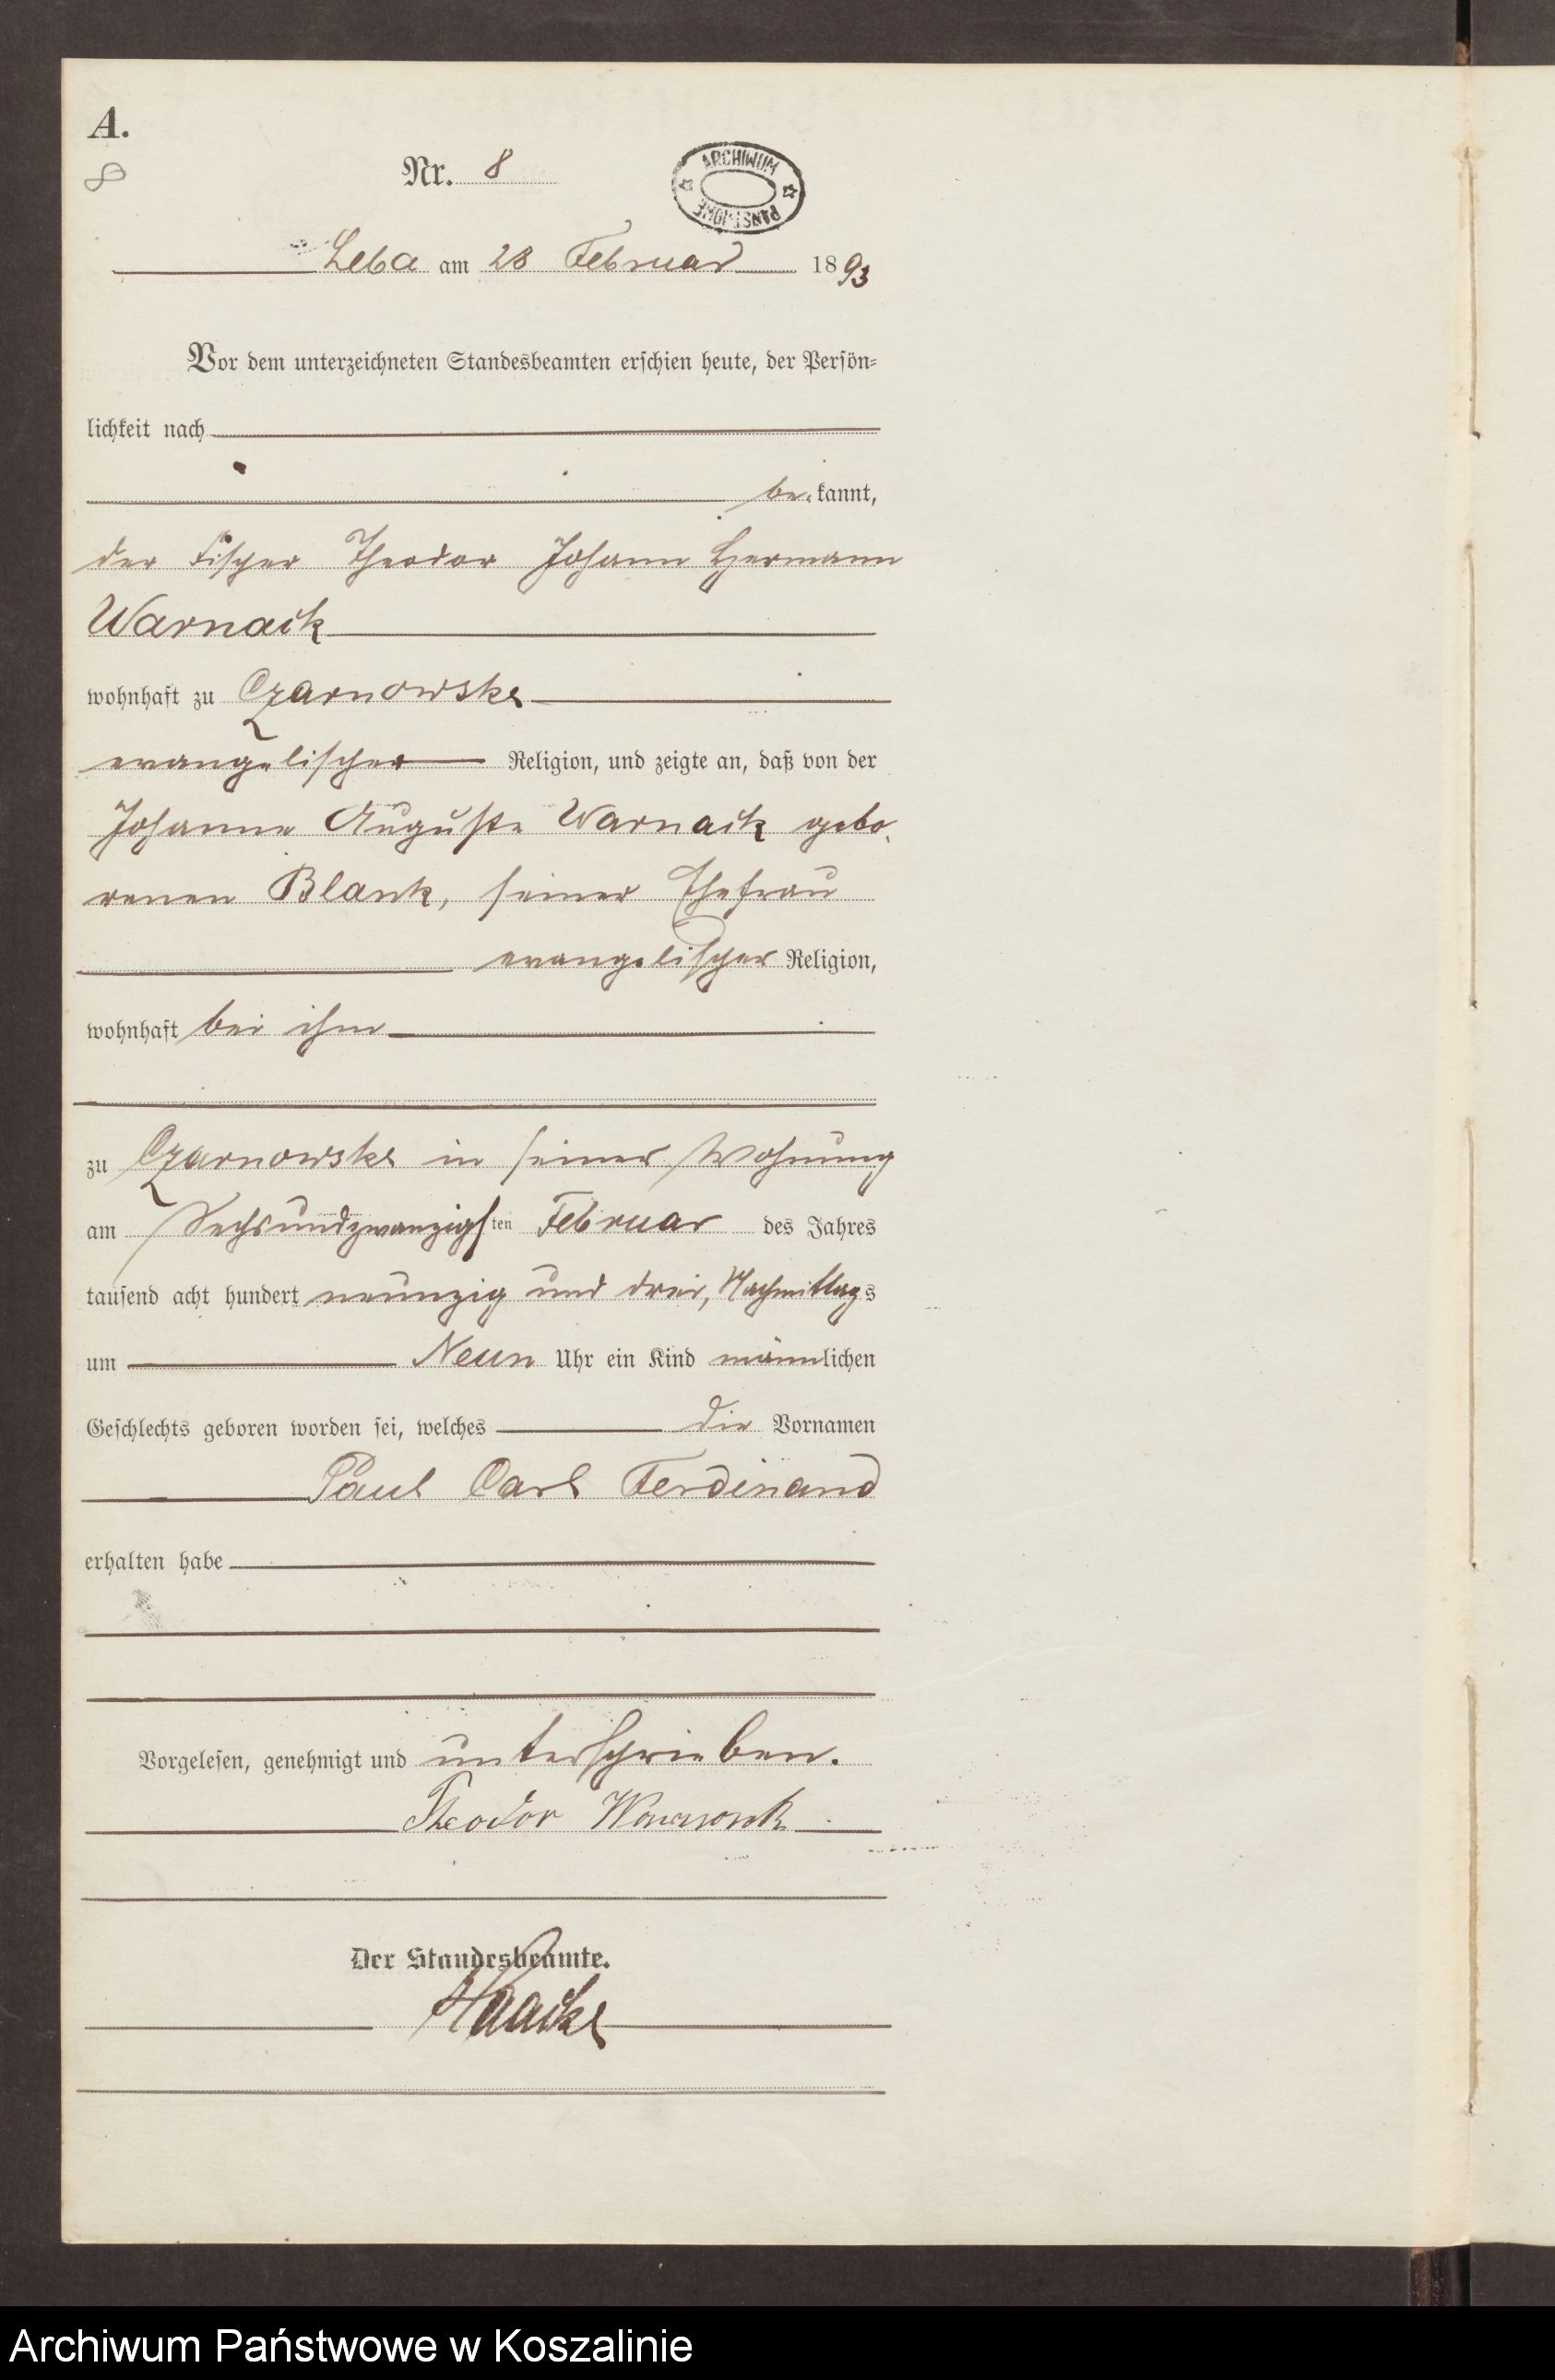 A.
8
Nr. 8
ARCHIWUM
PAŃSTWOWE
Leba am 28 Februar 1893
Vor dem unterzeichneten Standesbeamten erschien heute, der Persön-
lichkeit nach
bekannt,
der Fischer Theodor Johann Hermann
Warnack
wohnhaft zu Czarnowske
evangelischer Religion, und zeigte an, daß von der
Johanne Auguste Warnack gebo-
renen Blank, seiner Ehefrau
evangelischer Religion,
wohnhaft bei ihm
zu Czarnowske in seiner Wohnung
am Sechsundzwanzigsten Februar des Jahres
tausend acht hundert neunzig und drei, Nachmittags
um Neun Uhr ein Kind männlichen
Geschlechts geboren worden sei, welches die Vornamen
Paul Carl Ferdinand
erhalten habe
Vorgelesen, genehmigt und unterschrieben.
Theodor Warnack
Der Standesbeamte.
Haacke
Archiwum Państwowe w Koszalinie